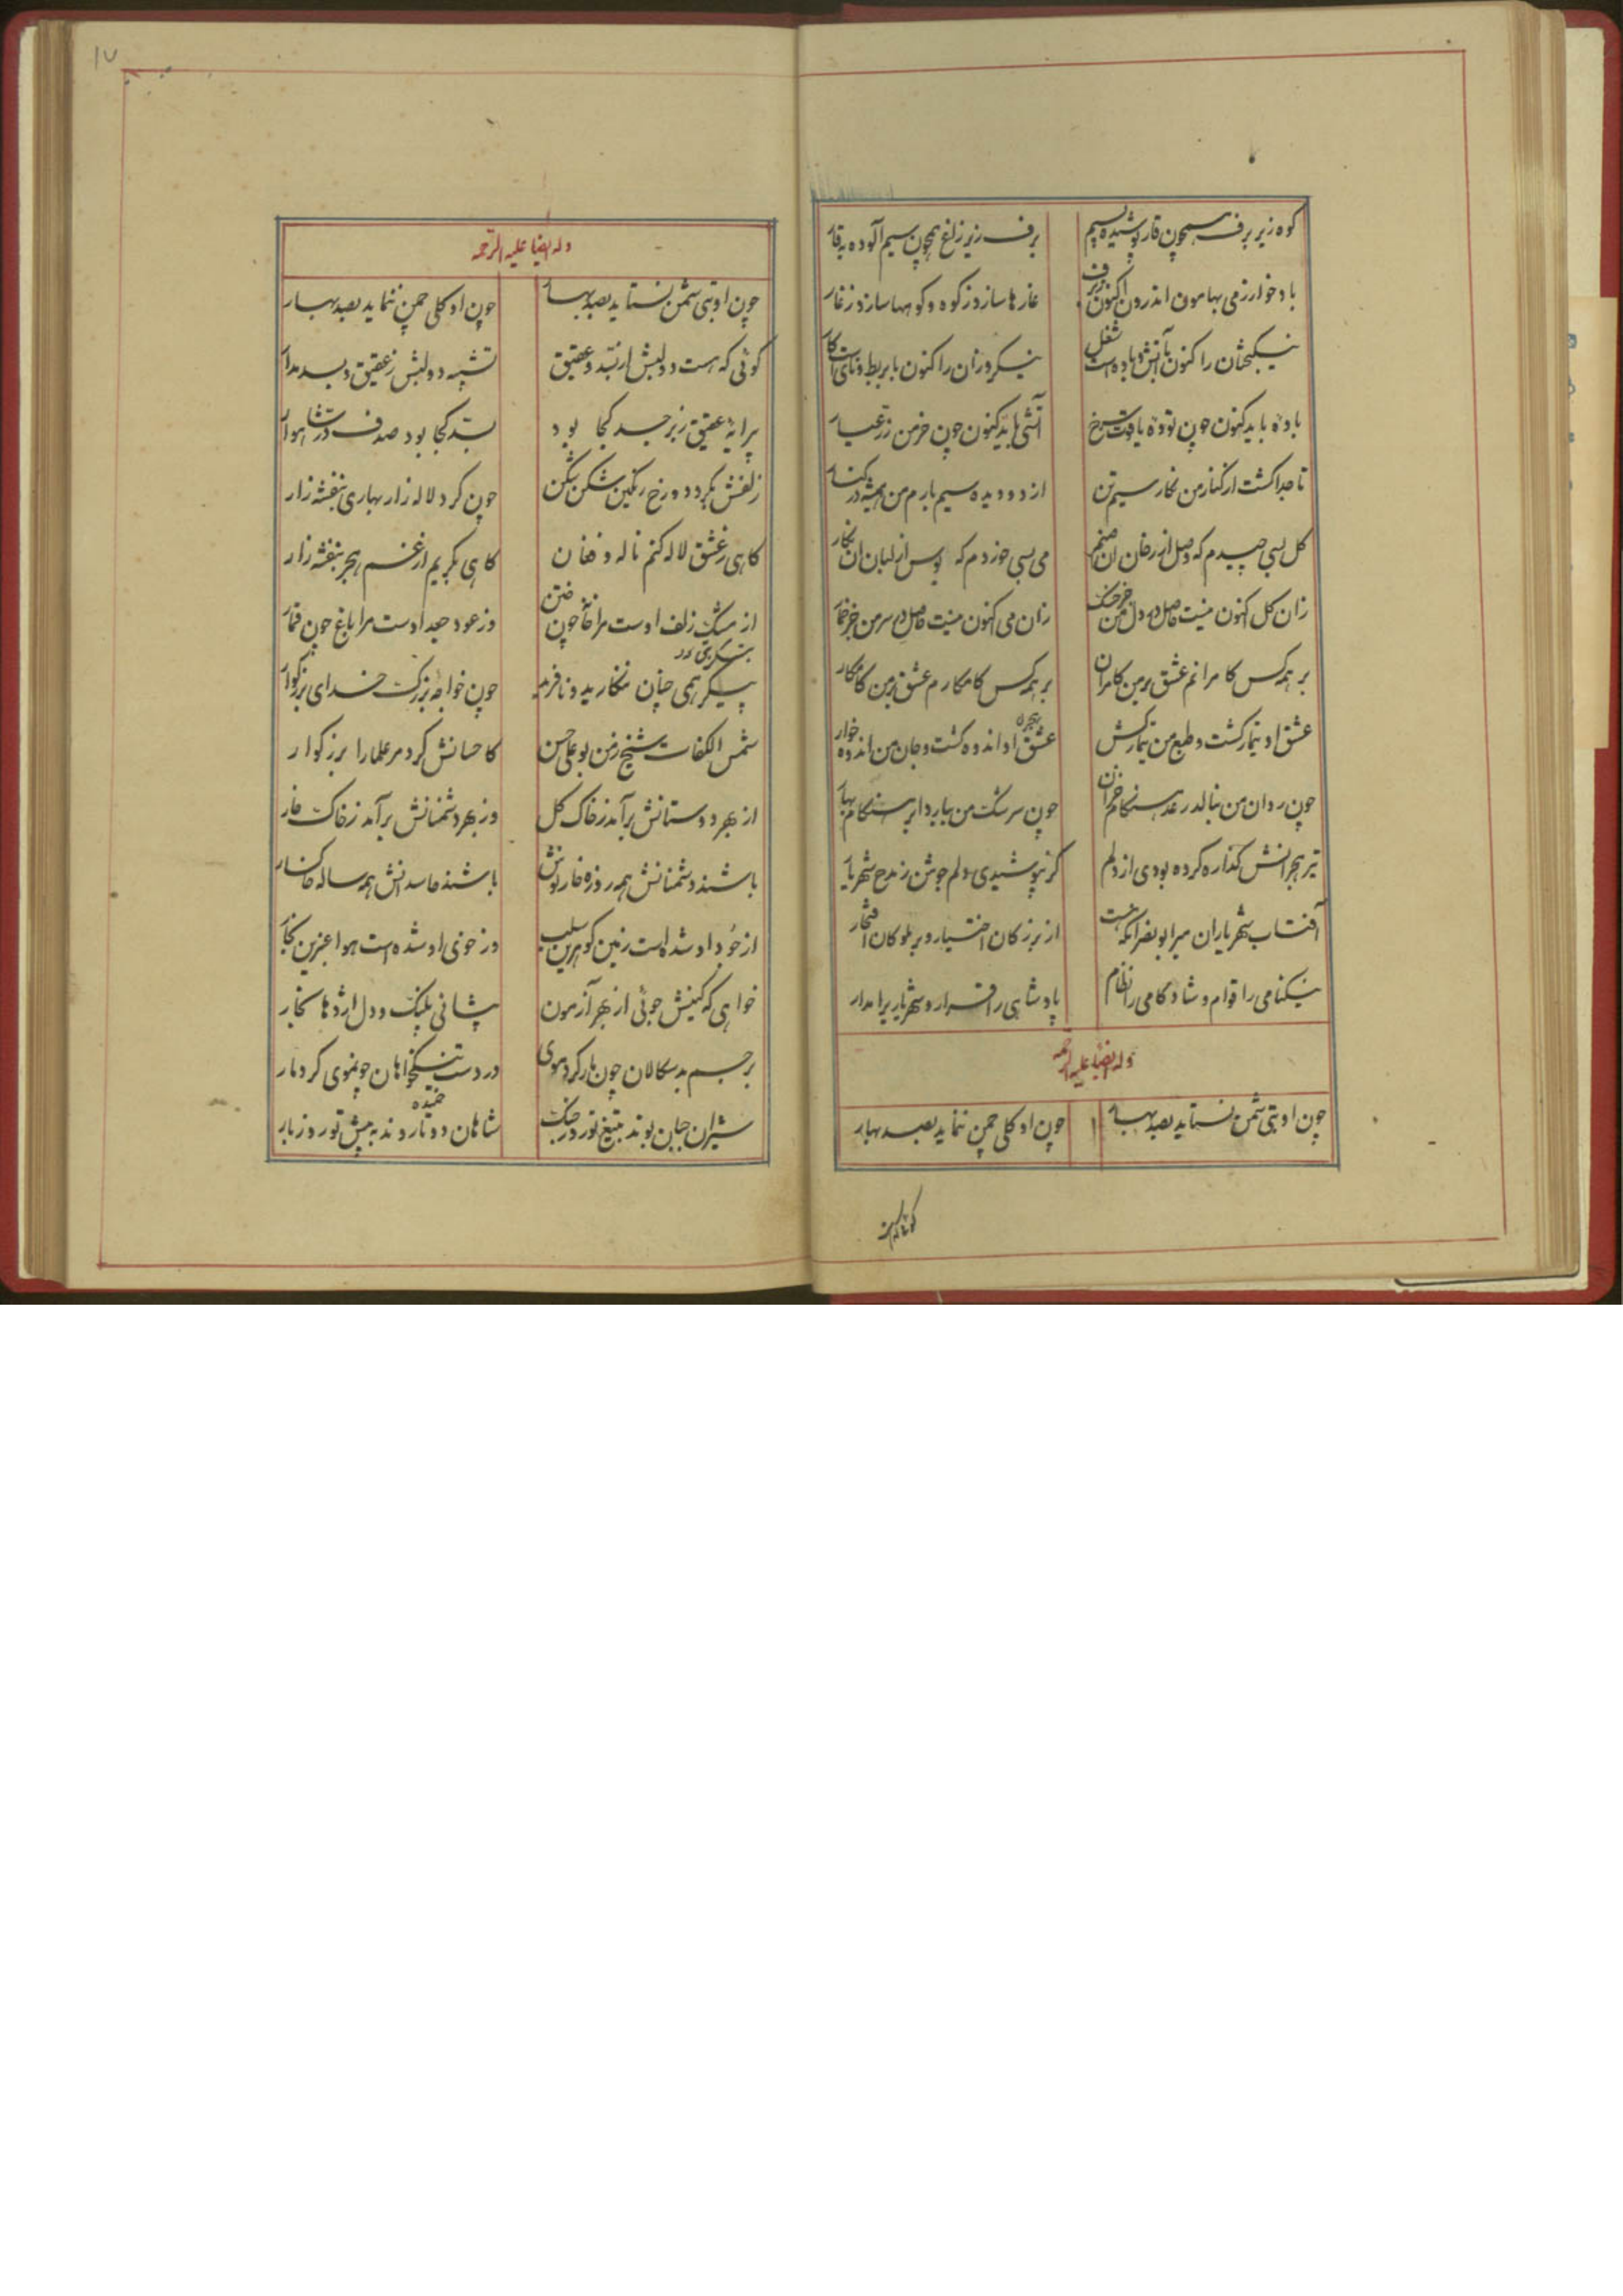 کوه زیر برف همچون قار پوشیده بسیم برف زیر زاغ همچون سیم آلوده بقار
باد خوارزمی بهامون اندرون اکنون ز برف غارها سازد ز کوه و کوهها سازد ز غار
نیکبختان را کنون با آتش و باده است شغل نیکروزان را کنون با بربط و نای است کار
باده باید کنون چون توده یاقوت سرخ آتشی باید کنون چون خرمن زر عیار
تا جدا گشت از کنار من نگار سیم تن از دو دیده سیم بارم من همیشه در کنار
گل بسی چیدم که وصل از رخان آن صنم می بسی خوردم که بوس از لبان آن نگار
زان گل اکنون نیست حاصل در دل من جز خسک زان می اکنون نیست حاصل در سر من جز خمار
بر همه کس کامرانم عشق بر من کامران بر همه کس کامکارم عشق بر من کامکار
عشق او تیمار گشت و طبع من تیمارکش هجر
عشق او اندوه گشت و جان من اندوه خوار
چون روان من بنالد رعد هنگام خزان چون سرشک من ببارد ابر هنگام بهار
تیر هجرانش گذاره کرده بودی از دلم گر نپوشیدی دلم جوشن ز مدح شهریار
آفتاب شهریاران میر ابونصر آنکه هست از بزرگان اختیار و بر ملوکان افتخار
نیکنامی را قوام و شادکامی را نظام پادشاهی را قرار و شهریاری را مدار
وله ایضا علیه الرحمه
چون او بتی شمن نستاید بصد بهار چون او گلی چمن ننماید بصد بهار
وله ایضا علیه الرحمه
چون او بتی شمن نستاید بصد بهار چون او گلی چمن ننماید بصد بهار
گوئی که هست دو لبش از بسد و عقیق تشبیه دو لبش ز عقیق و بسد مدار
پیرایه عقیق زبرجد کجا بود بسد کجا بود صدف در شاهوار
زلفش بگرد دو رخ رنگین شکن شکن چون گرد لاله زار بهاری بنفشه زار
گاهی ز عشق لاله کنم ناله و فغان گاهی بگریم از غم هجر بنفشه زار
از مشک زلف اوست مرا خانه چون ختن وز عود جعد اوست مرا باغ چون قمار
پیکر همی چنان ننگارید و نافرید چون خواجه بزرگ خدای بزرگوار
شمس الکفات شیخ زمن بوعلی حسن کاحسانش کرد مر علما را بزرگوار
از بهر دوستانش برآید ز خاک گل وز بهر دشمنانش برآید ز خاک خار
باشند دشمنانش همه روزه خار نوش باشند حاسدانش همه ساله خاکسار
از جود او شده است زمین گوهرین سلب وز خوی او شده است هوا عنبرین بخار
خواهی که کینش جوئی از بهر آزمون پیشانی پلنگ و دل اژدها بخار
بر جسم بدسگالان چون مار کرد موی در دست نیکخواهان چو موی کرد مار
شیران جبان بوند بتیغ تو روز جنگ شاهان دوتا روند به پیش تو روز بار